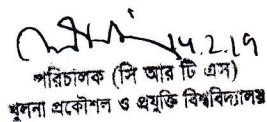 ১৭.২.১৭
পরিচালক (সি আর টি এস)
খুলনা প্রকৌশল ও প্রযুক্তি বিশ্ববিদ্যালয়